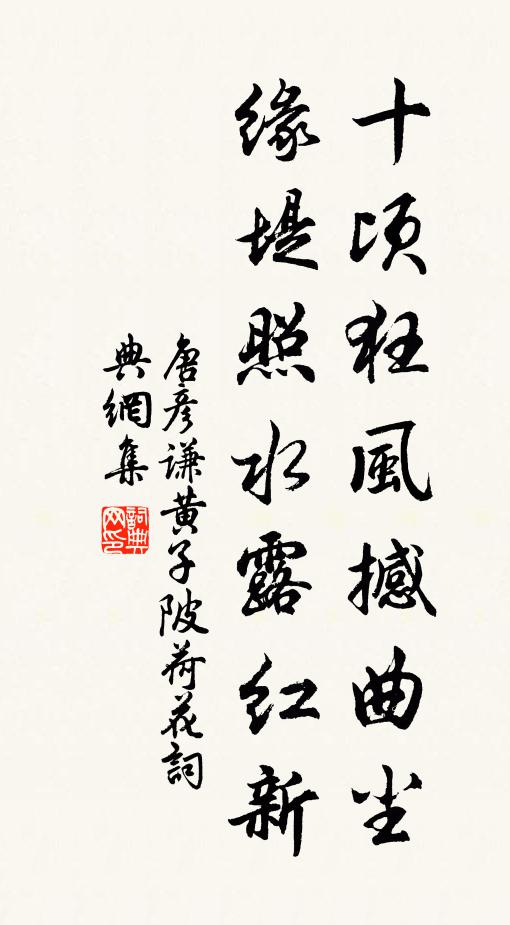 十顷狂風撼曲尘
缘堤照水露红新
唐彦谦黄子陂荷花詞
典網集
詞典
网印